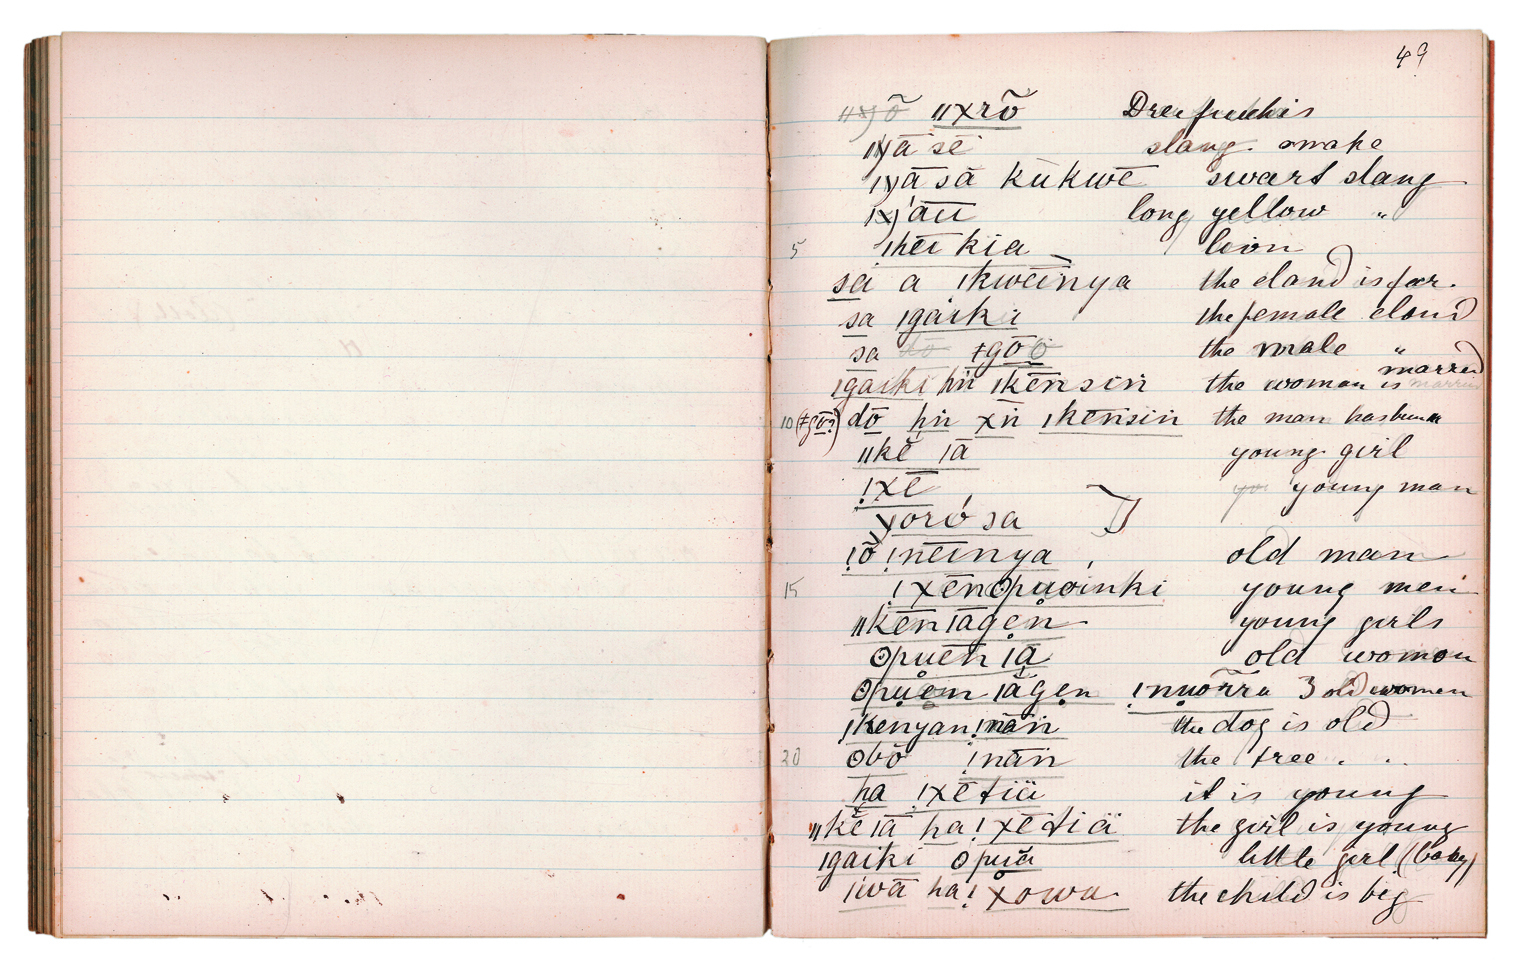 49
ǁxrõ Dreifuchis
ā sē slang. snake
ā sā kūkwē swart slang
'āū long yellow "
5 ǀhēīkia lion
sa a ǀkwēīnya the eland is far.
sa ǀgaiki the female eland
sa ǂgōö the male "
ǀgaiki hṅ ǀkēnsin the woman is married
10 (ǂgō?) dō hṅ xṅ ǀkēnsin the man has
ǁkĕ ǀā young girl
ǃxē young man
xoró sa
ǃõ ǃnēīnya old man
15 ǃxēnʘpuoinki young men
ǁkēnǀāgen young girls
ʘpuēnǀā old woman
ʘpuenǀāgen ǃnwõrra 3 old women
ǀkenyan ǃnāṅ the dog is old
20 ʘbō ǃnāṅ the tree . ..
ha ǃxētiä it is young
ǁkĕǀā ha ǃxētiä the girl is young
ǀgaiki ʘpuă little girl (baby)
ǀwā ha ǃxowa the child is big